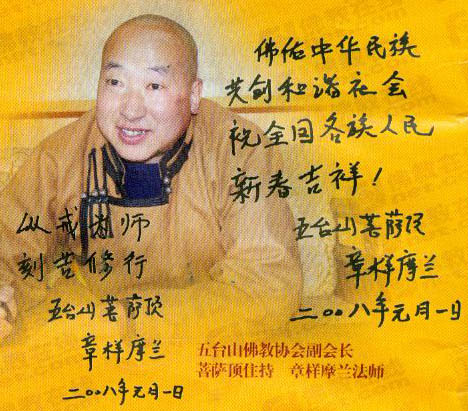 佛佑中华民族
共创和谐社会
祝全国各族人民
新春吉祥！
五台山菩萨顶
章样摩兰
二〇〇八年元月一日
从戒为师
刻苦修行
五台山菩萨顶
章样摩兰
二〇〇八年元月一日
五台山佛教协会副会长
菩萨顶住持 章样摩兰法师